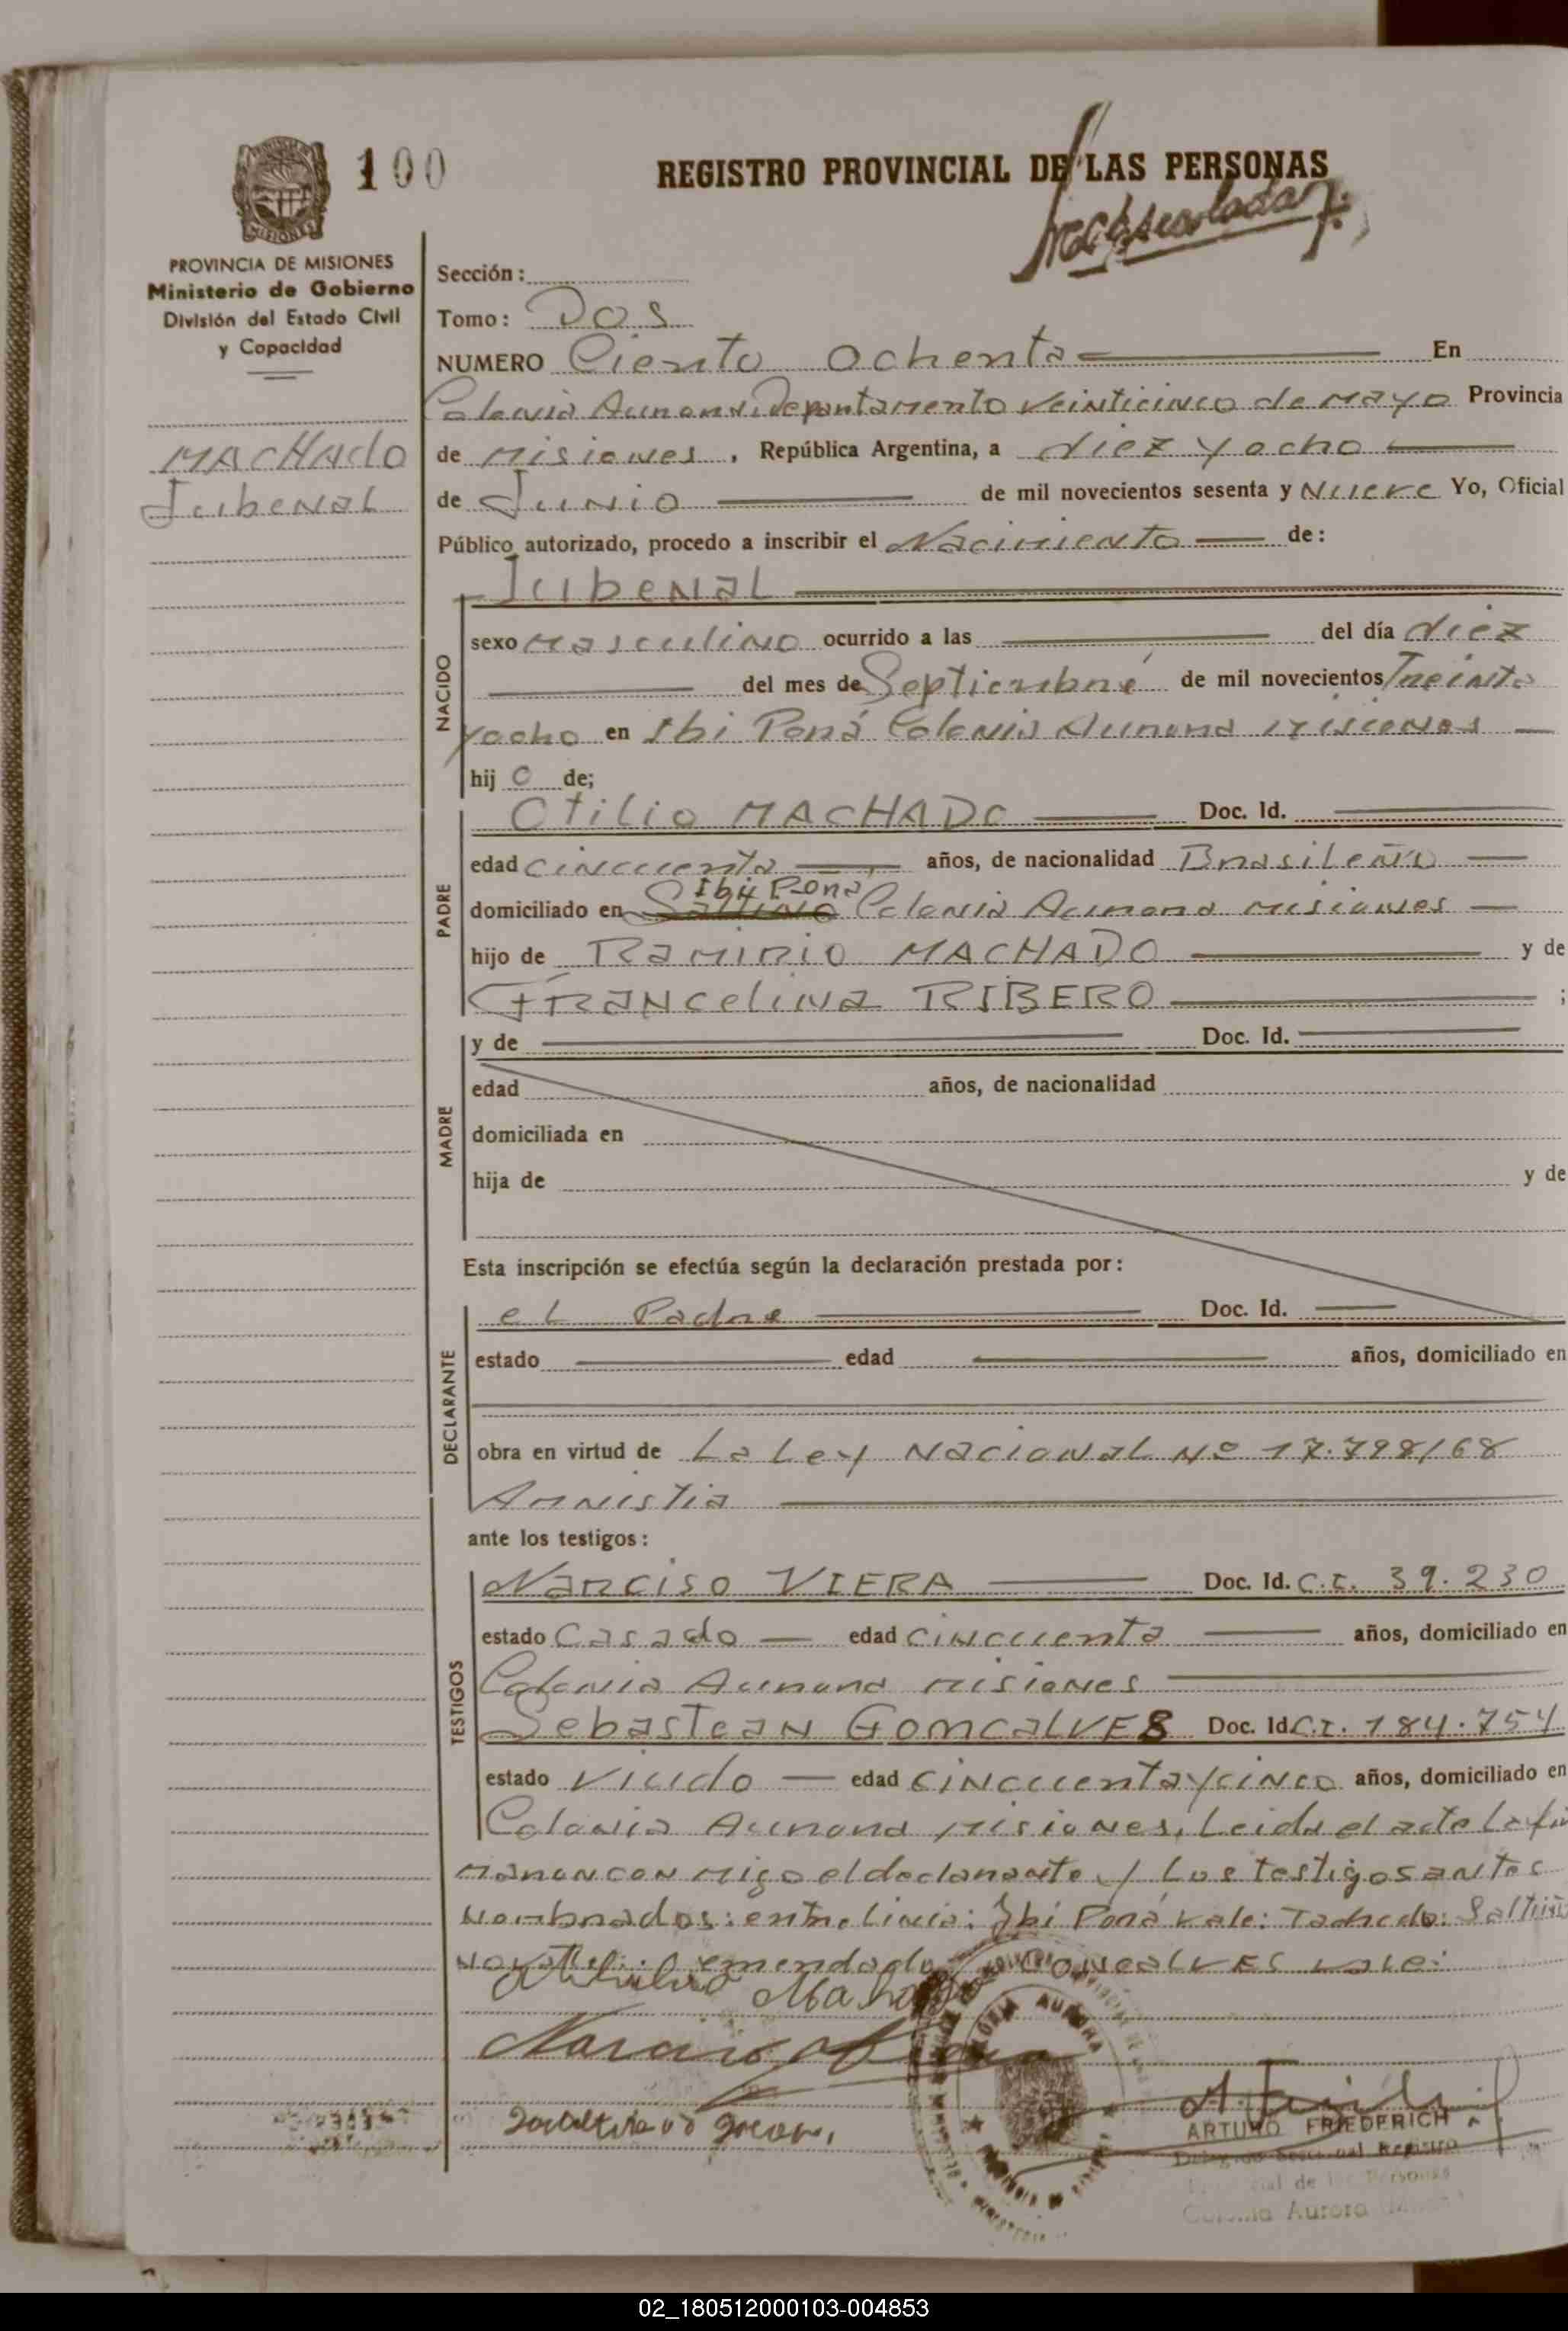 100
REGISTRO PROVINCIAL DE LAS PERSONAS
PROVINCIA DE MISIONES
Ministerio de Gobierno
División del Estado Civil
y Capacidad
MACHAdo
JubeNaL
Sección:
Tomo: Dos
NUMERO Ciento ochenta En
Colonia Aurora Departamento Veinticinco de Mayo Provincia
de Misiones, República Argentina, a diez y ocho
de Junio de mil novecientos sesenta y Nueve Yo, Oficial
Público autorizado, procedo a inscribir el Nacimiento de:
JubeNaL
NACIDO
sexo Masculino ocurrido a las del día diez
del mes de Septiembre de mil novecientos Treinta
yocho en Ibi Porá Colonia Aurora Misiones
hijo de;
PADRE
Otilio MACHADO Doc. Id.
edad cincuenta años, de nacionalidad Brasileño
Iby Porá
domiciliado en Saltiño Colonia Aurora Misiones
hijo de Ramirio MACHADO y de
FRANceliNa RIBERO ;
MADRE
y de Doc. Id.
edad años, de nacionalidad
domiciliada en
hija de y de
Esta inscripción se efectúa según la declaración prestada por:
DECLARANTE
eL Padre Doc. Id.
estado edad años, domiciliado en
obra en virtud de La Ley Nacional Nº 17.798/68
Amnistia
ante los testigos:
TESTIGOS
Narciso VIERA Doc. Id. C.I. 39.230
estado Casado edad cincuenta años, domiciliado en
Colonia Aurora Misiones
Sebastean GomcalVES Doc. Id C.I. 184.754
estado Viudo edad cincuentaycinco años, domiciliado en
Colonia Aurora Misiones, Leida el acta la fir
maron con migo el declarante y Los testigos antes
Nombrados: entre linia: Ibi Porá Vale: Tachado: Saltiño
No Vale: emendado GONCALVES Vale:
ARTURO FRIEDERICH
Registro
de las Personas
Colonia Aurora
02_180512000103-004853